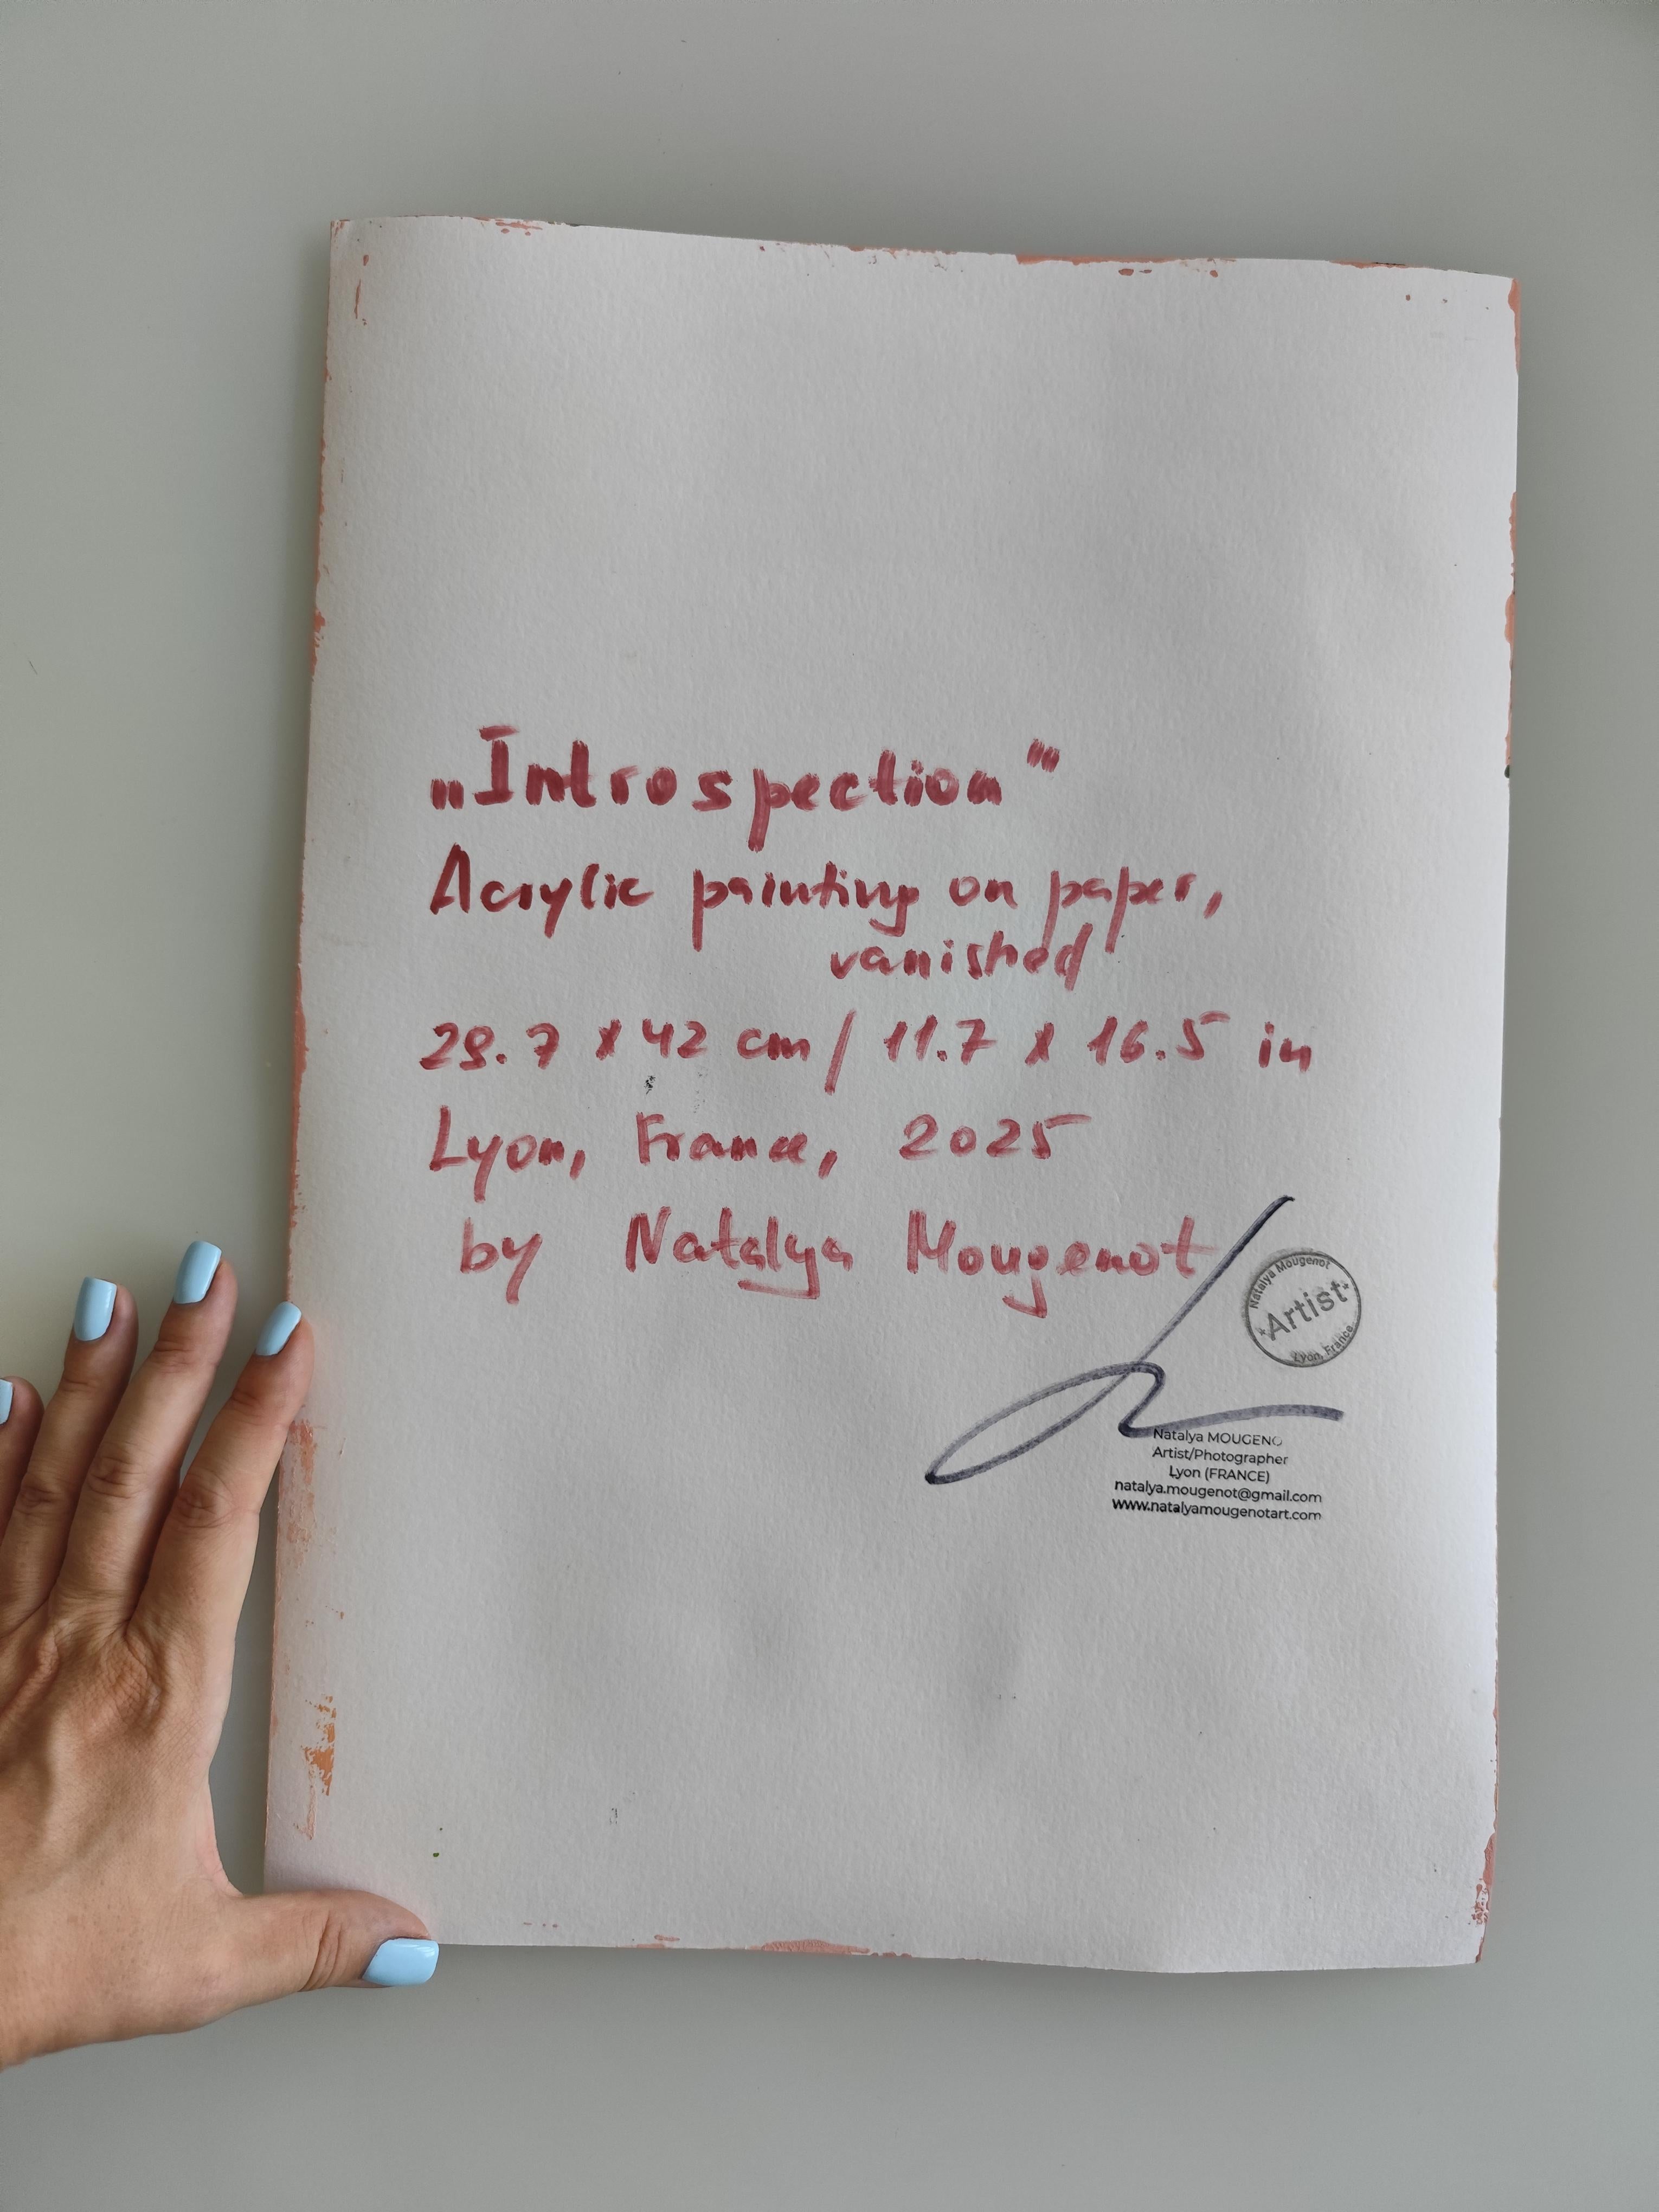 „Introspection"
Acrylic painting on paper,
vanished
29.7 x 42 cm / 11.7 x 16.5 in
Lyon, France, 2025
by Natalya Mougenot
Natalya Mougenot
*Artist*
Lyon, France
Natalya MOUGENO
Artist/Photographer
Lyon (FRANCE)
natalya.mougenot@gmail.com
www.natalyamougenotart.com